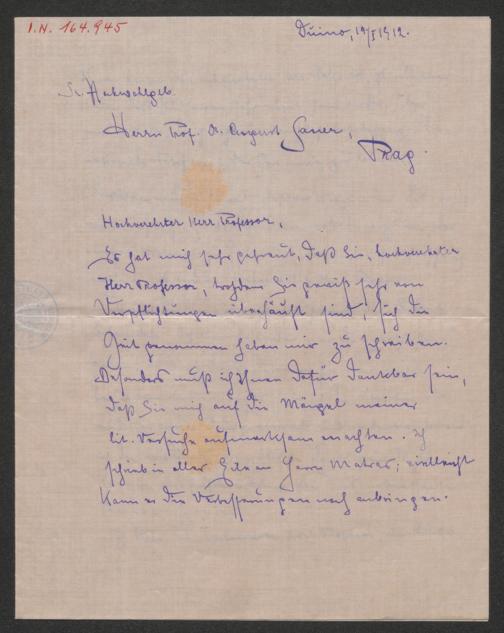 I.N. 164.945
Duino, 19/I 1912.
Sr. Hochwohlgeb.
Herrn Prof. Dr. August Sauer,
Prag.
Hochverehrter Herr Professor,
Es hat mich sehr gefreut, daß Sie, hochverehrter
Herr Professor, trotzdem Sie gewiß sehr von
Verpflichtungen überhäuft sind, sich die
Zeit genommen haben mir zu schreiben.
Besonders muß ich Ihnen dafür dankbar sein,
daß Sie mich auf die Mängel meiner
lit. Versuche aufmerksam machten. Ich
schrieb in aller Eile an Herrn; vielleicht
kann er die Verbesserungen noch anbringen.